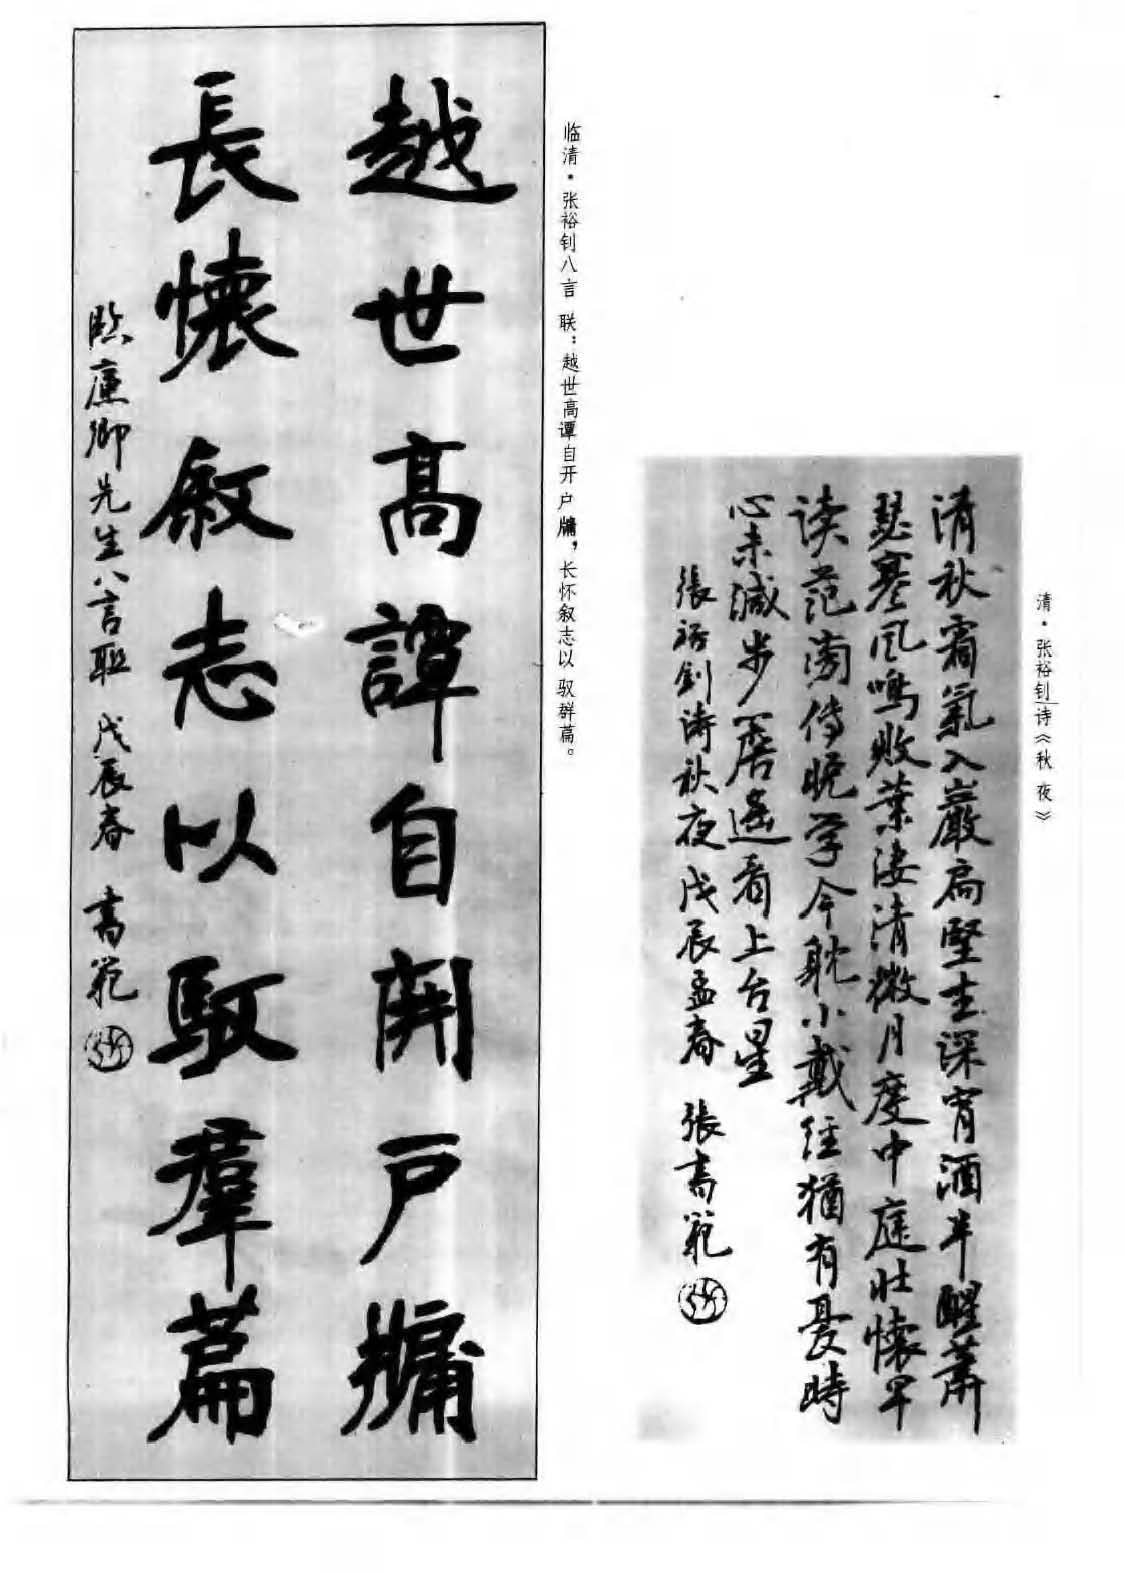 清·张裕钊诗《秋夜》
清秋霜氣入巖扃堅坐深宵酒半醒蕭
瑟寒风鳴敗葉淒清微月度中庭壮懷早
读范滂傳晚学今躭小戴经猶有憂時
心未減步檐遥看上台星
張裕釗诗秋夜戊辰孟春 張書範
临清·张裕钊八言联：越世高谭自开户牖，长怀叙志以驭群篇。
越世高譚自開戸牖
長懷叙志以馭羣篇
臨廉卿先生八言联 戊辰春 書範